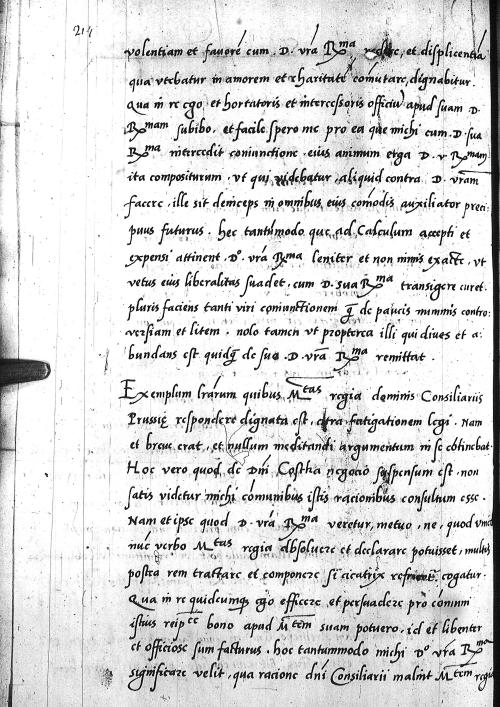 214
volentiam et favorē cum . D. vrā Rma reducere, et displicentiā
qua vtebatur in amorem et charitatē cōmutare, dignabitur.
Qua in re ego, et hortatoris et intercessoris officiū apud suam D.
Rmam subibo, et facile spero me pro ea que michi cum D. sua
Rma intercedit coniunctione, eius animum erga D. v Rmam
ita compositurum, vt qui videbatur, aliquid contra D. vram
facere, ille sit deinceps in omnibus eius cōmodis auxiliator preci-
puus futurus. hec tantūmodo que ad Calculum accepti et
expensi attinent. Do. vrā Rma leniter et non nimis exacte, vt
vetus eius liberalitas suadet, cum D. sua Rma transigere curet.
pluris faciens tanti viri coniunctionem q̄ de paucis nummis contro-
versiam et litem. nolo tamen vt propterea illi qui dives et a-
bundans est quidq̄ de suo . D. vrā Rma remittat .
Exemplum lrārum quibus Mtas regia dominis Consiliariis
Prussię respondere dignata est, citra fatigationem legi. Nam
et breve erat, et nullum meditandi argumentum in se cōtinebat.
Hoc vero quod de Dni Costha negocio suspensum est, non
satis videtur michi cōmunibus istis racionibus consultum esse.
Nam et ipse quod D. vrā Rma veretur, metuo, ne, quod vnico
nūc verbo Mtas regia absolvere et declarare potuisset, multis
postea rem tractare et componere si cicatrix cogatur.
Qua in re quidcunq ego efficere, et persuadere pro cōmuni
istius reipce bono apud Mtem suam potuero, id et libenter
et officiose sum facturus, hoc tantummodo michi Do vrā Rma
significare velit, qua racione dni Consiliarii malint Mtem regiā